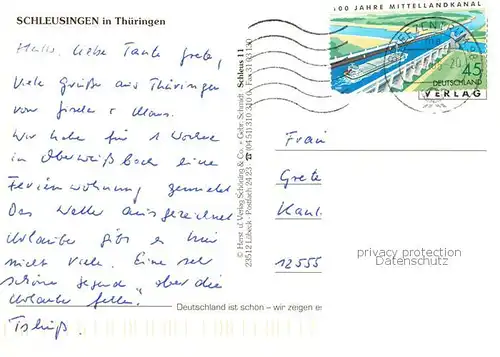 SCHLEUSINGEN in Thüringen
Hallo, liebe Tante Grete,
viele Grüße aus Thüringen
von Gisela + Klaus.
Wir haben für 1 Woche
in Oberweißbach eine
Ferienwohnung gemietet
Das Wetter ausgezeichnet
Urlauber gibt es hier
nicht viele. Eine sehr
schöne Gegend, aber die
Urlauber fehlen.
Tschüß.
© Herst. u. Verlag Schöning & Co. + Gebr. Schmidt
23512 Lübeck · Postfach 24 23 ☎ (04 51) 310 320
Schleus 11
100 JAHRE MITTELLANDKANAL
45
DEUTSCHLAND
VERLAG
Frau
Grete
12555
privacy protection
Datenschutz
Deutschland ist schön – wir zeigen es